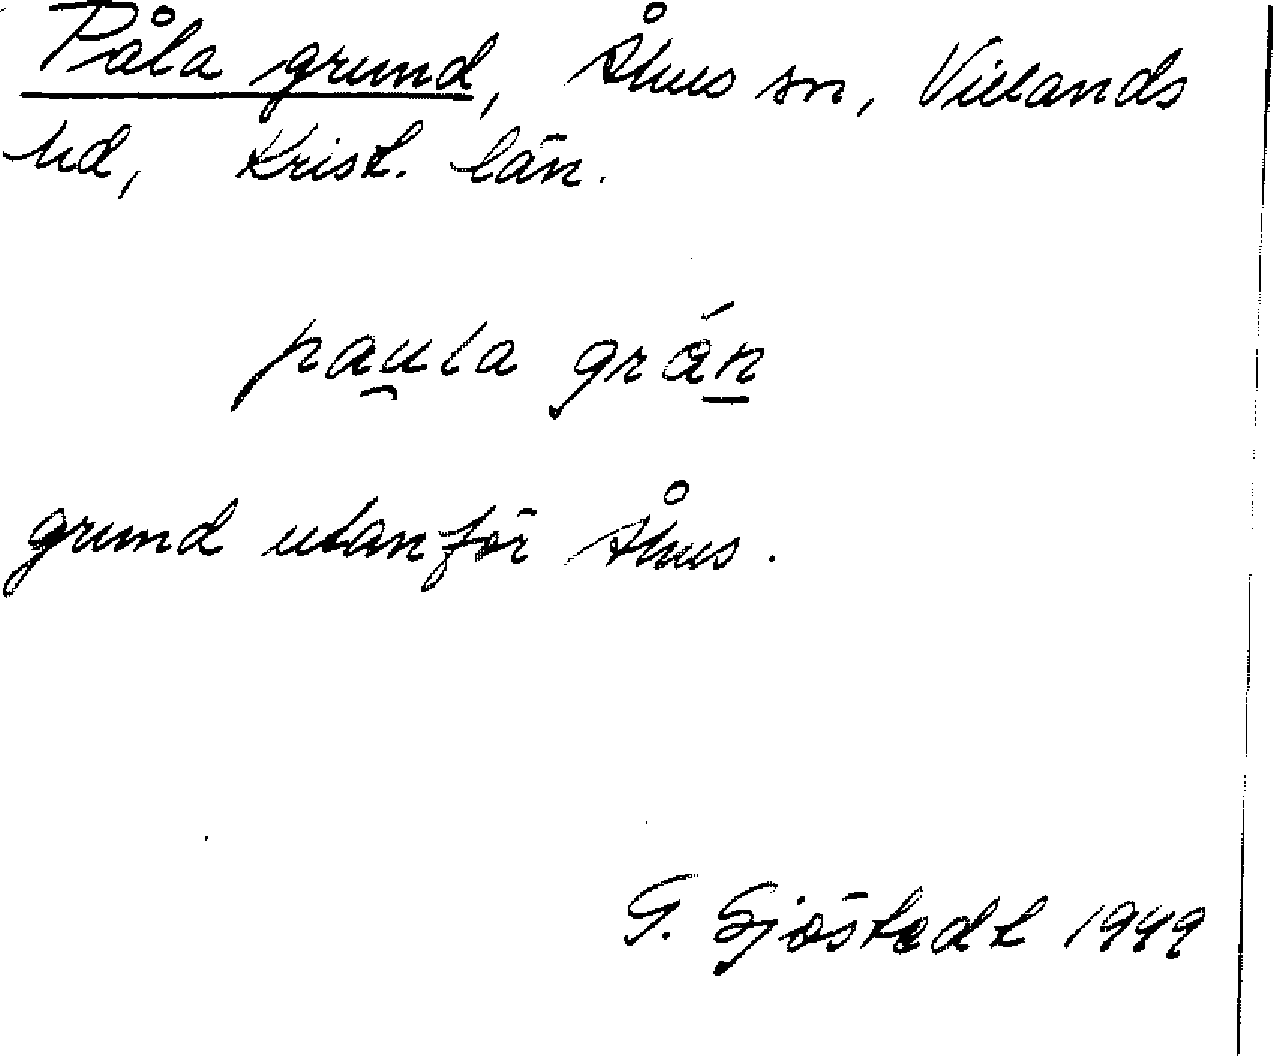 Påla grund, Åhus sn, Villands
hd, Krist. län.
pau̯la grán̲
grund utanför Åhus.
G. Sjöstedt 1949